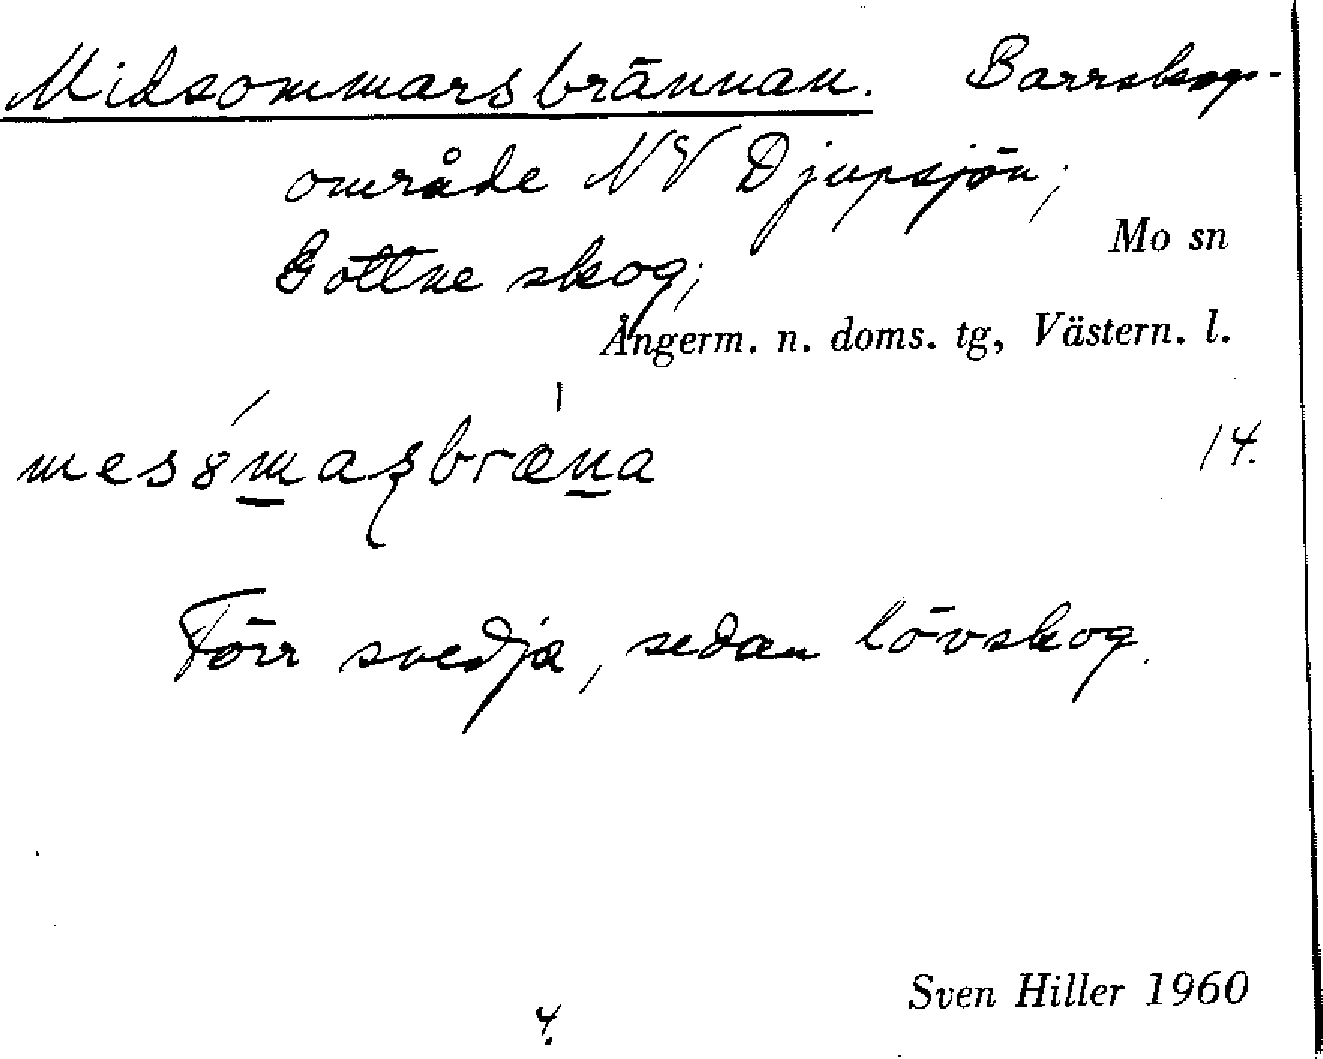 Midsommarsbrännan. Barrskogs-
område NV Djupsjön;
Mo sn
Gottne skog;
Ångerm. n. doms. tg, Västern. l.
14.
Förr svedja, sedan lövskog.
Sven Hiller 1960
4.